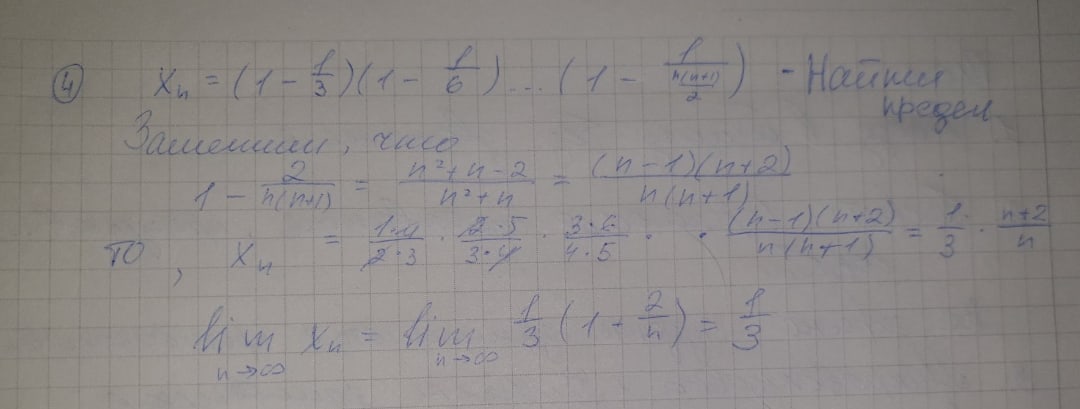 ④ xₙ = (1 - 1/3)(1 - 1/6)...(1 - 1/(n(n+1)/2)) - Найти
предел
Заметим, что
1 - 2/(n(n+1)) = (n²+n-2)/(n²+n) = ((n-1)(n+2))/(n(n+1))
то, xₙ = (1·4)/(2·3) · (2·5)/(3·4) · (3·6)/(4·5) · · ((n-1)(n+2))/(n(n+1)) = 1/3 · (n+2)/n
lim n→∞ xₙ = lim n→∞ 1/3 (1 + 2/n) = 1/3